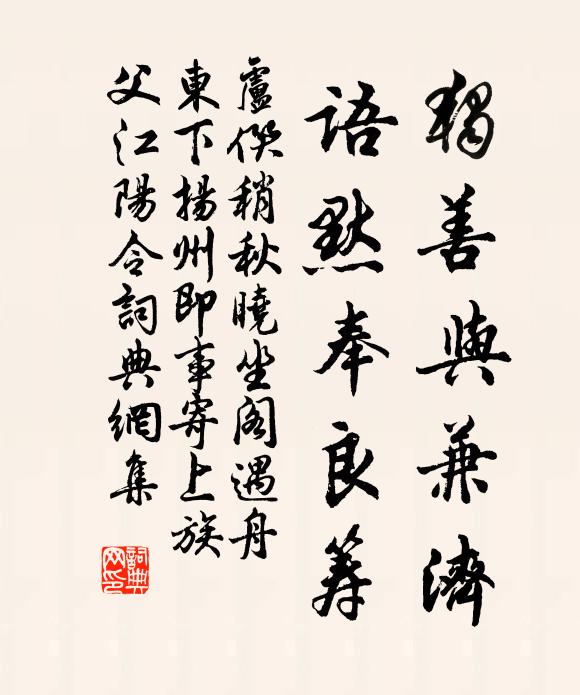 獨善與兼濟
語默奉良籌
盧僎稍秋曉坐閣遇舟
東下揚州即事寄上族
父江陽令詞典網集
詞典网印